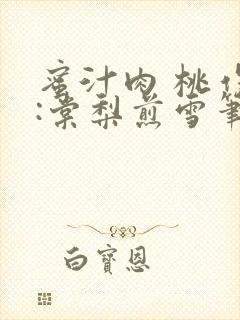 蜜汁肉桃作
:棠梨煎雪筆
白寶恩